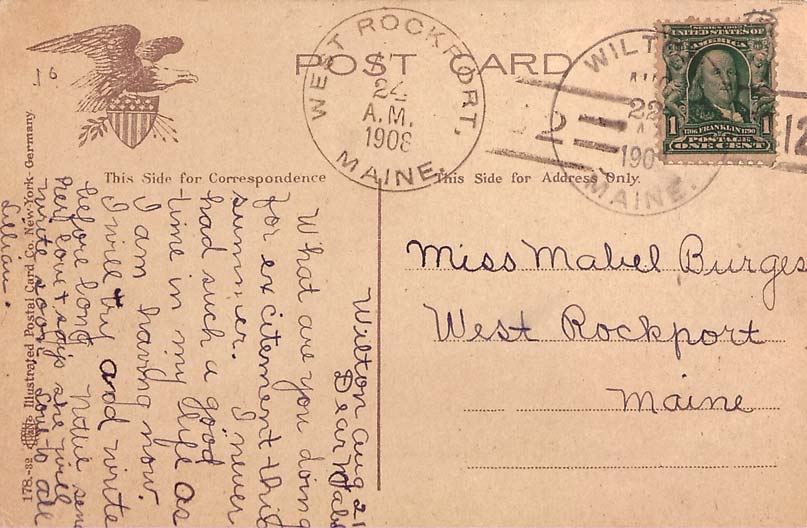 POST CARD
WEST ROCKPORT,
24
A.M.
1908
MAINE.
WILT
22
190
MAINE.
SERIES 1902
UNITED STATES OF
AMERICA
1706 FRANKLIN 1790
POSTAGE
1 ONE CENT 1
12
16
This Side for Correspondence
This Side for Address Only.
Miss Mabel Burges
West Rockport
Maine
Wilton Aug 21
Dear Mabel
What are you doing
for excitement this
summer. I never
had such a good
time in my life as
I am having now.
I will try and write
before long. Nettie sends
her love & says she will
write soon. Love to all
Lillian.
178.-32 Illustrated Postal Card Co. New-York-Germany